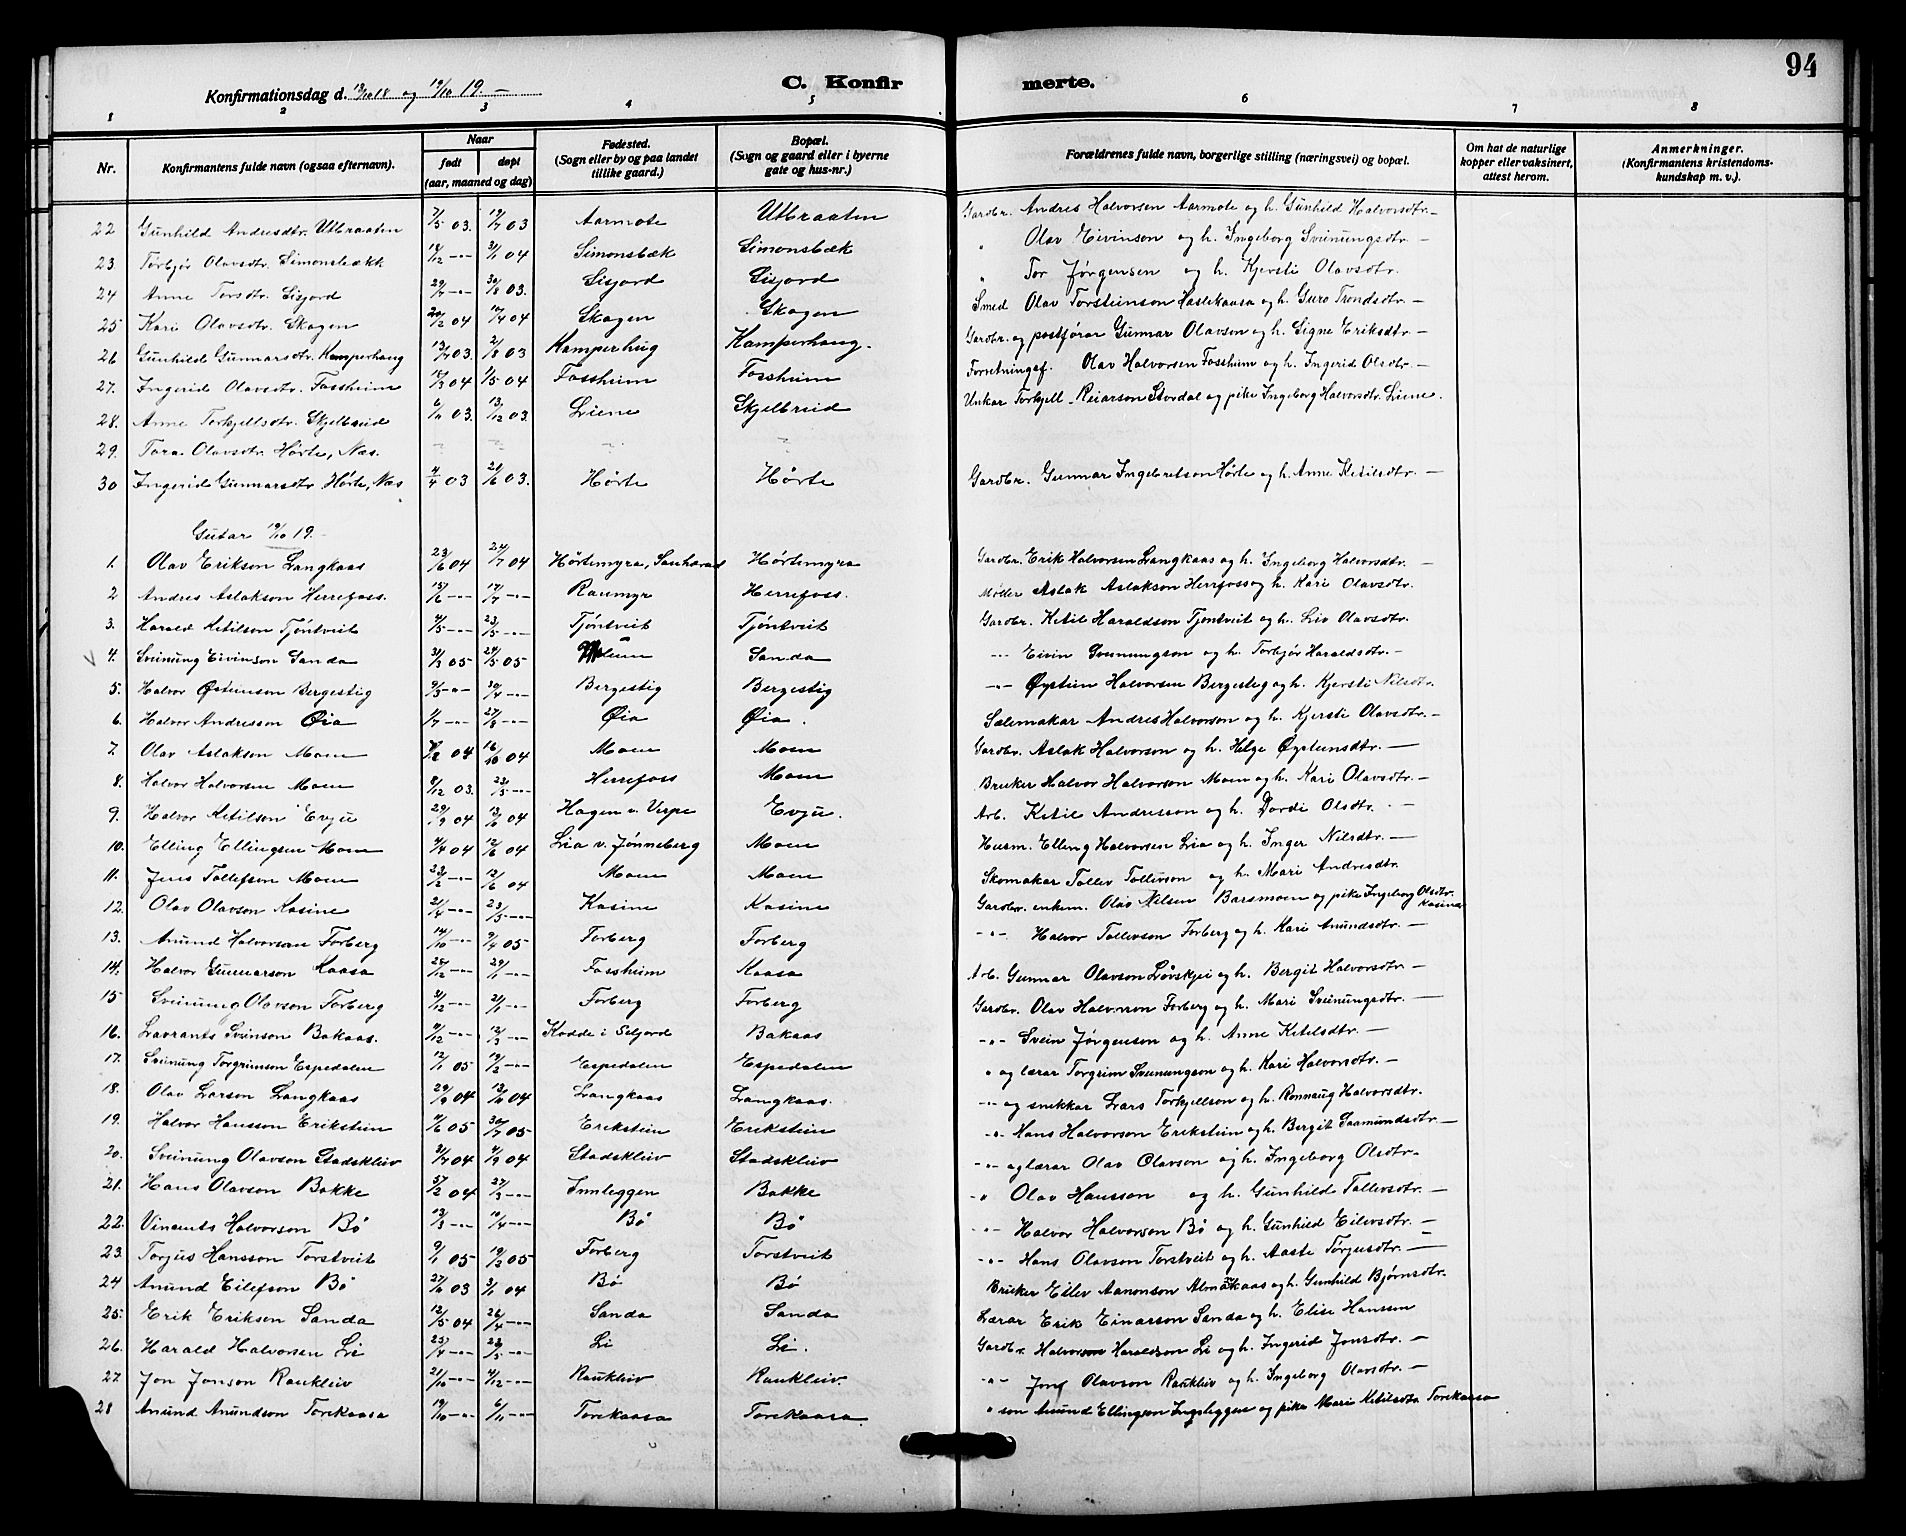 94
Konfirmationsdag d. 13/10 18 og 19/10 19. —
C. Konfirmerte.
1 2 3 4 5 6 7 8
Nr. Konfirmantens fulde navn (ogsaa efternavn). Naar født døpt (aar, maaned og dag) Fødested. (Sogn eller by og paa landet tillike gaard.) Bopæl. (Sogn og gaard eller i byerne gate og hus-nr.) Forældrenes fulde navn, borgerlige stilling (næringsvei) og bopæl. Om hat de naturlige kopper eller vaksinert, attest herom. Anmerkninger. (Konfirmantens kristendomskundskap m. v.).
22 Gunhild Andresdtr. Utbraaten 7/5 03. 19/7 03 Aarmote Utbraaten Gardbr. Andres Halvorsen Aarmote og h. Gunhild Halvorsdtr. —
23. Torbjør Olavsdtr. Simonsbækk 3/1 04 Simonsbæk Simonsbæk " Olav Eivinson og h. Ingeborg Sveinungsdtr. —
24 Anne Torsdtr. Sisjord 30/8 03. Sisjord Sisjord " Tor Jørgensen og h. Kjersti Olavsdtr.
25 Kari Olavsdtr. Skogen 20/2 04 Skogen Skogen Smed Olav Torsteinson Haslekaasa og h. Guro Trondsdtr. —
26 Gunhild Gunnarsdtr. Kamperhaug 2/8 03 Kamperhug Kamperhaug. Gardbr. og postførar Gunnar Olavson og h. Signe Eriksdtr. —
27. Ingerid Olavsdtr. Fossheim 1/5 04 Fossheim Fossheim Forretningsf. Olav Halvorsen Fossheim og h. Ingerid Olsdtr. —
28. Anne Torkjellsdtr. Skjelbreid 6/11 03. 13/12 03. Liene Skjelbreid Unkar Torkjell Reiarson Stordal og pike Ingeborg Halvorsdtr. Liene.
29. Tora Olavsdtr. Hørte, Næs.
30 Ingerid Gunnarsdtr. Hørte, Næs 4/4 03 21/6 03. Hørte Hørte Gardbr. Gunnar Ingebretson Hørte og h. Anne Ketilsdtr. —
Gutar 19/10 19.
1. Olav Erikson Langkaas 23/6 04 24/7 04 Hørtemyra, Sauherad Hørtemyra Gardbr. Erik Halvorsen Langkaas og h. Ingeborg Halvorsdtr. —
2 Andres Aslakson Herrefoss. 15/6 -"- 17/7 -"- Raumyr Herrefoss. Møller Aslak Aslakson Herrefoss og h. Kari Olavsdtr.
3. Harald Ketilson Tjøntveit 4/5 -"- 23/5 -"- Tjøntveit Tjøntveit Gardbr. Ketil Haraldson Tjøntveit og h. Liv Olavsdtr.
4. Sveinung Eivinson Sanda 05 05 Sanda -"- Eivin Sveinungson og h. Torbjør Haraldsdtr. —
5. Halvor Østeinson Bergestig 30/4 -"- Bergestig Bergestig -"- Øystein Halvorsen Bergestig og h. Kjersti Nilsdtr.
6. Halvor Andresson Øia -"- 27/8 -"- Øia Øia. Salemakar Andres Halvorson og h. Kjersti Olavsdtr. —
7. Olav Aslakson Moen 04 16/10 04 Moen Moen Gardbr. Aslak Halvorson og h. Helge Øysteinsdtr. —
8. Halvor Halvorsen Moen 8/12 03. -"- Herrefoss Moen Bruker Halvor Halvorson Moen og h. Kari Olavsdtr. —
9. Halvor Ketilson Evju 29/9 04 04 Hagen u. Verpe Evju. Arb. Ketil Andresson og h. Dordi Olsdtr. —
10. Elling Ellingsen Moen 4/4 04 12/6 04 Lia v. Jønneberg Moen Husm. Elling Halvorsen Lia og h. Inger Nilsdtr. —
11. Jens Tollefson Moen -"- 12/6 04 Moen Moen Skomakar Tollev Tollevson og h. Mari Andresdtr.
12. Olav Olavson Kasine 21/4 -"- 23/5 -"- Kasine Kasine Gardbr. enkem. Olav Nilsen Barsmoen og pike Ingeborg Olsdtr. Kasine
13. Anund Halvorsen Forberg 14/10 -"- 9/4 05 Forberg Forberg -"- Halvor Tollevson Forberg og h. Kari Anundsdtr. —
14. Halvor Gunnarson Kaasa 26/12 -"- 29/1 -"- Fossheim Kaasa Arb. Gunnar Olavson Løvskjei og h. Bergit Halvorsdtr. —
15 Sveinung Olavson Forberg -"- -"- Forberg Forberg Gardbr. Olav Halvorson Forberg og h. Mari Sveinungsdtr. —
16. Lavrants Sveinson Bakaas. -"- 12/3 -"- Kodde i Seljord Bakaas -"- Svein Jørgenson og h. Anne Ketilsdtr. —
17. Sveinung Torgrimson Espedalen 12/1 05 19/2 -"- Espedalen Espedalen " og lærar Torgrim Sveinungson og h. Kari Halvorsdtr. —
18. Olav Larson Langkaas 29/9 04 04 Langkaas Langkaas. -"- og snekkar Lars Torkjellson og h. Ronnaug Halvorsdtr.
19. Halvor Hansson Erikstein 05 30/7 05 Erikstein Erikstein -"- Hans Halvorson Erikstein og h. Bergit Saamundsdtr. —
20. Sveinung Olavson Stadskleiv 04 4/9 04 Stadskleiv Stadskleiv -"- og lærar Olav Olavson og h. Ingeborg Olsdtr. —
21. Hans Olavson Bakke 04 27/3 -"- Innleggen Bakke -"- Olav Hansson og h. Gunhild Tollevsdtr. —
22. Vincents Halvorson Bø 13/3 -"- -"- Bø Bø -"- Halvor Halvorson Bø og h. Gunhild Eilevsdtr. —
23. Torjus Hansson Torstveit 9/1 05 19/2 05 Forberg Torstveit -"- Hans Olavson Torstveit og h. Aaste Torjusdtr. —
24 Anund Eilefson Bø 03 3/1 04 Bø Bø Bruker Eilev Aanonson Almankaas og h. Gunhild Bjørnsdtr.
25. Erik Erikson Sanda 12/5 04 -"- Sanda Sanda Lærar Erik Einarson Sanda og h. Elise Hanssen
26. Harald Halvorsen Li 25/4 -"- 22/5 -"- Li Li. Gardbr. Halvorson Haraldson Li og h. Ingerid Jonsdtr. —
27. Jon Jonson Raukleiv 21/10 -"- 4/12 -"- Raukleiv Raukleiv -"- Jon Olavson Raukleiv og h. Ingeborg Olavsdtr. —
28 Anund Anundson Torekaasa 19/10 -"- 6/11 -"- Torekaasa Torekaasa. " son Anund Ellingson Ingoleggen og pike Mari Ketilsdtr Torekaasa